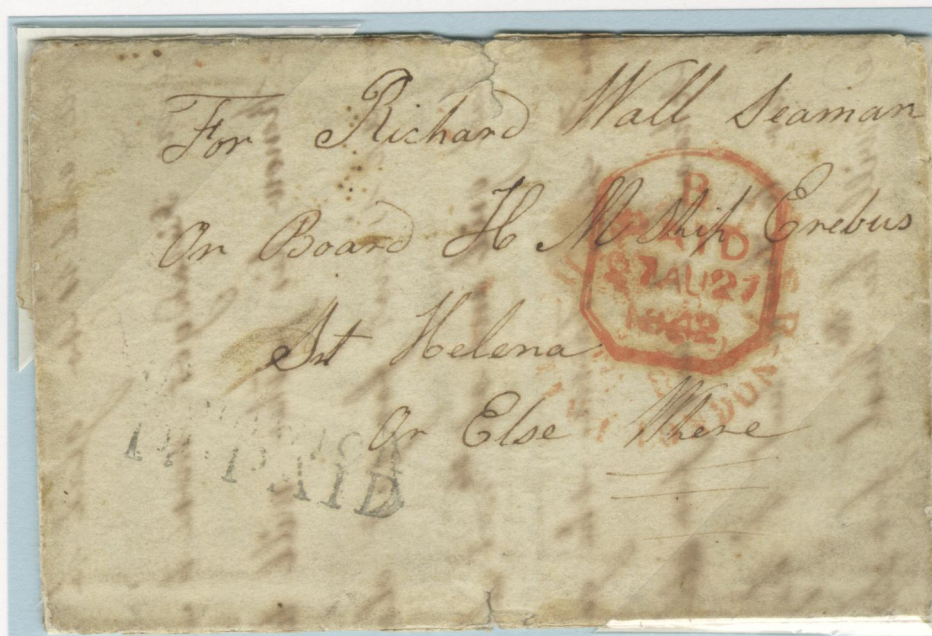 For Richard Wall Seaman
On Board H M Ship Erebus
St Helena
Or Else Where
B
PAID
27 AU 27
1842
PAID